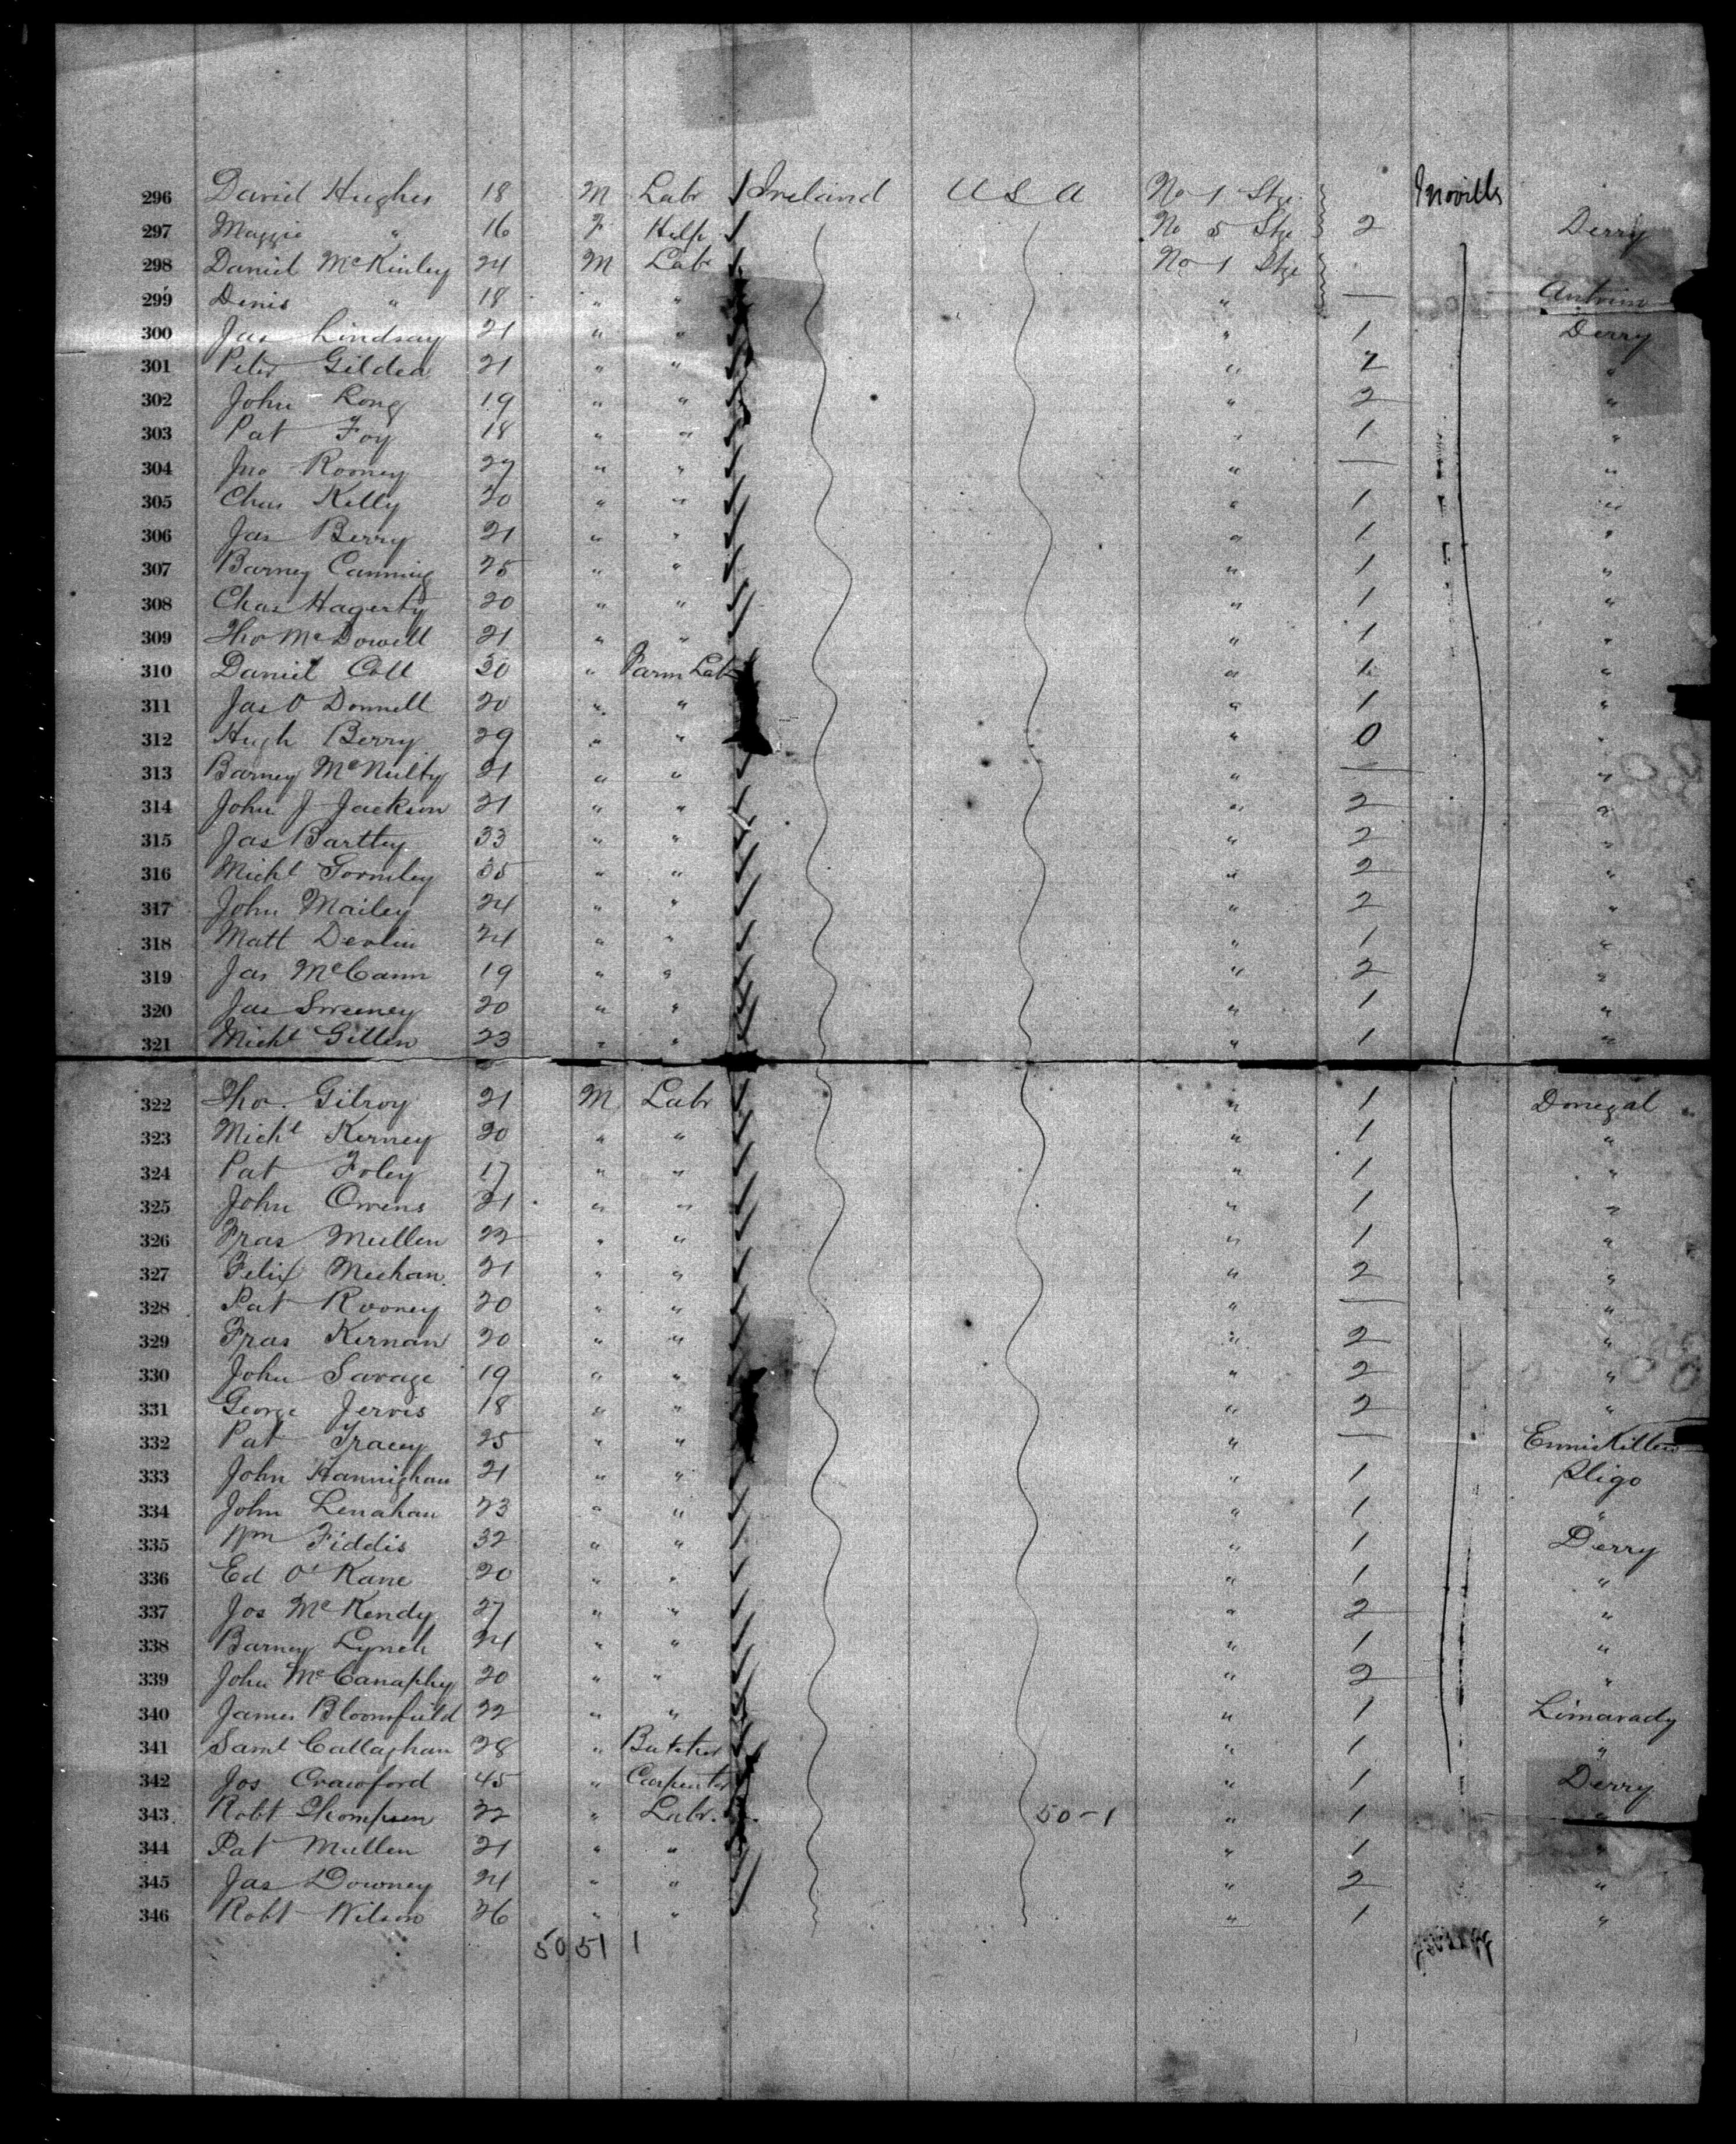 296 David Hughes 18 M Labr Ireland U S A No 1 Stge Moville
297 Maggie " 16 F Help No 5 Stge 2 Derry
298 Daniel McKinley 24 M Labr No 1 Stge
299 Denis " 18 " " " — Antrim
300 Jas Lindsay 21 " " " 1 Derry
301 Peter Gildea 21 " " " 2 "
302 John Long 19 " " " 2 "
303 Pat Foy 18 " " " 1 "
304 Jno Rooney 27 " " " — "
305 Chas Kelly 20 " " " 1 "
306 Jas Berry 21 " " " 1 "
307 Barney Canning 25 " " " 1 "
308 Chas Hagerty 20 " " " 1 "
309 Tho McDowell 21 " " " 1 "
310 Daniel Coll 30 " Farm Labr " 1 "
311 Jas O Donnell 20 " " " 1 "
312 Hugh Berry 29 " " " 0 "
313 Barney McNulty 21 " " " — "
314 John J Jackson 21 " " " 2 "
315 Jas Bartley 33 " " " 2 "
316 Michl Gormley 35 " " " 2 "
317 John Mailey 24 " " " 2 "
318 Matt Devlin 24 " " " 1 "
319 Jas McCann 19 " " " 2 "
320 Jas Sweeney 20 " " " 1 "
321 Michl Gillen 23 " " " 1 "
322 Tho. Gilroy 21 M Labr " 1 Donegal
323 Michl Kerney 20 " " " 1 "
324 Pat Foley 17 " " " 1 "
325 John Owens 21 " " " 1 "
326 Fras Mullen 22 " " " 1 "
327 Felix Meehan. 21 " " " 2 "
328 Pat Rooney 20 " " " — "
329 Fras Kernan 20 " " " 2 "
330 John Savage 19 " " " 2 "
331 George Jervis 18 " " " 2 "
332 Pat Tracey 25 " " " — Enniskillen
333 John Hannighan 21 " " " 1 Sligo
334 John Lenahan 23 " " " 1 "
335 Wm Fiddis 32 " " " 1 Derry
336 Ed O'Kane 20 " " " 1 "
337 Jos McKendy 27 " " " 2 "
338 Barney Lynch 24 " " " 1 "
339 John McCanaphy 20 " " " 2 "
340 James Bloomfield 22 " " " 1 Limavady
341 Saml Callaghan 28 " Butcher " 1 "
342 Jos Crawford 45 " Carpenter " 1 Derry
343 Robt Thompson 22 " Labr. 50-1 " 1 "
344 Pat Mullen 21 " " " 1 "
345 Jas Downey 24 " " " 2 "
346 Robt Wilson 26 " " " 1 "
50 51 1